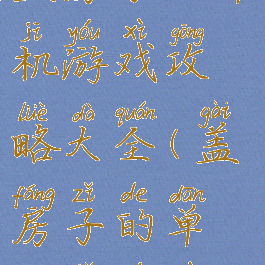 jī yóu xì gōng
机游戏攻
lüè dà quán gài
略大全(盖
fáng zǐ de dān
房子的单